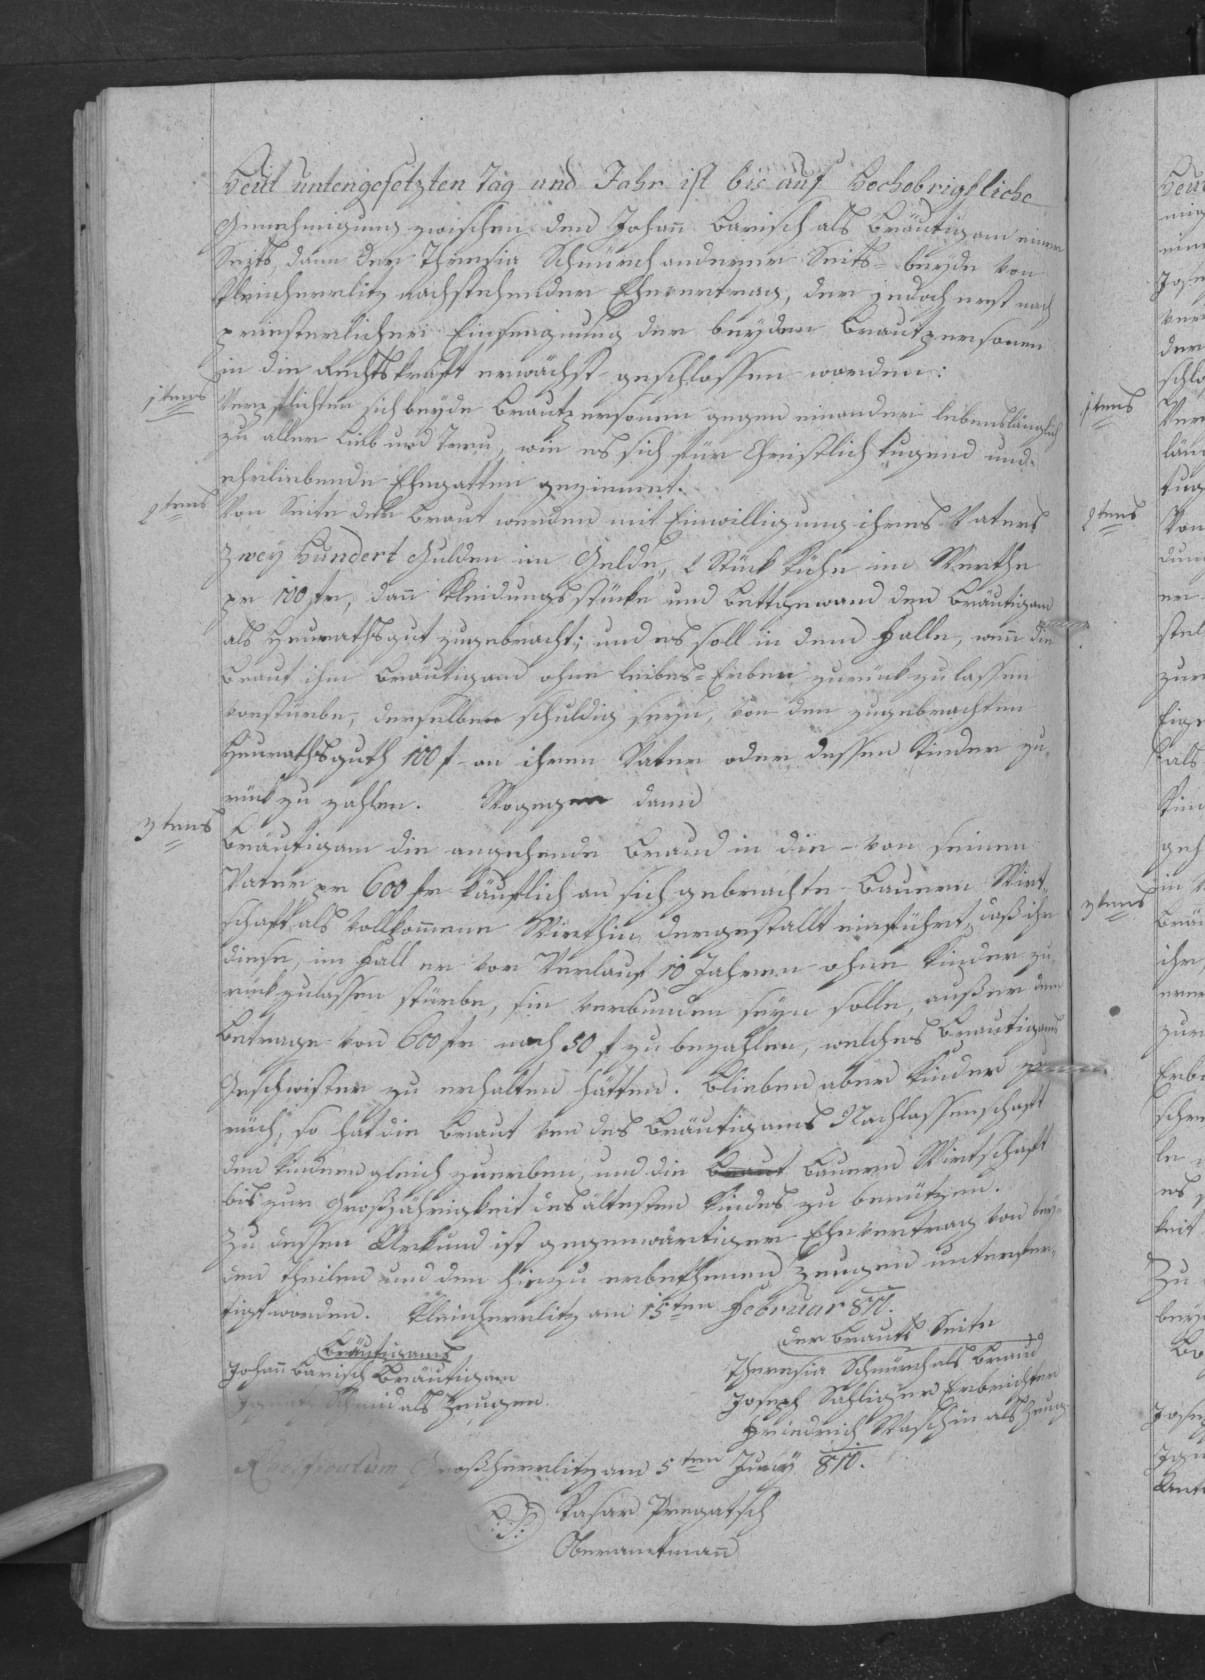 Heut untengesetzten Tag und Jahr ist bis auf Hochobrigkliche
Genehmigung zwischen den Johann Barisch als Bräutigam einer
Seits, dann der Theresia Schnürch anderer Seits = beyde von
Kleinherrlitz nachstehender Ehevertrag, der jedoch erst nach
priesterlicher Einsegnung der beyden Brautpersonen
in die Rechtskraft erwächst geschlossen worden:
1tens Verpflichten sich beyde Brautpersonen gegen einander lebenslänglich
zu aller Lieb und Treu, wie es sich für Christlich tugend und
ehrliebende Ehegatten geziemet.
2tens Von Seite der Braut werden mit Einwilligung ihres Vaters
Zwey Hundert Gulden im Gelde, 2 Stück Kühe im Werthe
pr 100 fr, dann Kleidungsstücke und Bettgewand den Bräutigam
als Heurathsgut zugebracht; und es soll in dem Falle, wenn die
Braut ihm Bräutigam ohne leibes=Erben zurückzulassen
vorstürbe, derselben schuldig seyn, von den zugebrachten
Heurathsguth 100 f an ihren Vater oder dessen Kinder zu-
rück zu zahlen. Wogegen dann
3tens Bräutigam die angehende Braud in die - von seinem
Vater pr 600 fr käuflich an sich gebrachte Bauern Wirt-
schaft als vollkommene Wirthin dergestallt einführt, daß ihr
diese, im Fall er vor Verlauf 10 Jahren ohne Kinder zu-
rückzulassen stürbe, sie verbunden seyn solle, außer dem
Betrage von 600 fr noch 50 f zu bezahlen, welches Bräutigams
Geschwister zu erhalten hätten. Blieben aber Kinder zu-
rück, so hat die Braut von des Bräutigams Nachlassenschaft
den Kindern gleich zu erben, und die Braut Bauern Wirtschaft
bis zur Großjährigkeit des ältesten Kindes zu benützen.
Zu dessen Urkund ist gegenwärtiger Ehevertrag von bey-
den Theilen und den hiezu erbethenen Zeugen unterfer-
tigt worden. Kleinherrlitz am 15ten Februar
Bräutigams
Johann Barisch Bräutigam
Schmid als Zeugen.
Der Brauts Seite
Theresia Schnürch als Braud
Joseph Sahliger Erbrichter
Friedrich Waschin als Zeug
Großherrlitz am 5ten Juny 810.
Oberamtmann